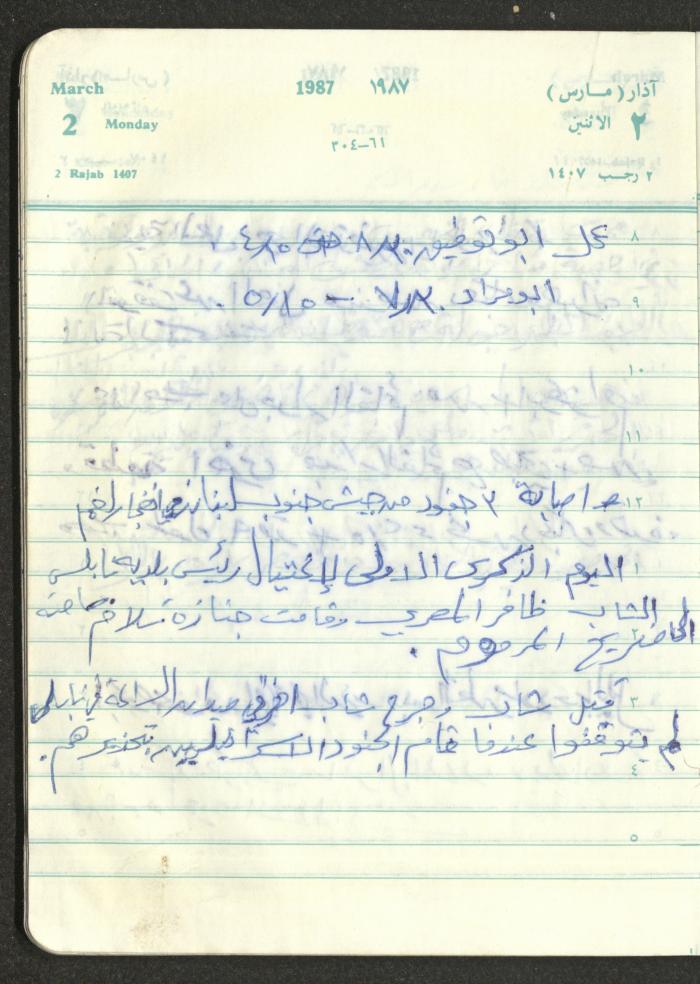 March 1987 ١٩٨٧ آذار ( مــارس )
2 Monday ٢ الاثنين
٦١–٣٠٤
2 Rajab 1407 ٢ رجــب ١٤٠٧
٨
عمل ابو توفيق ٨٫٣٠ حتى ٤٫١٥
٩
ابو مراد ٧٫٣٠ – ٥٫١٥ .
١٠
١١
١٢
اصابة ٣ جنود من جيش جنوب لبنان في انفجار لغم
١
اليوم الذكرى الاولى لإغتيال رئيس بلدية نابلس
الشاب ظافر المصري وقامت جنازة
٢
ضريح المرحوم .
٣
قتل شاب وجرح شاب اخر في ميدان الساعة في نابلس
لم يتوقفوا عندما قام الجنود الاسرائيليين بتحذيرهم .
٤
٥